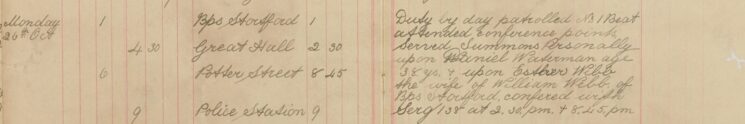 Monday 1 Bps Stortford 1 Duty by day patrolled No. 1 Beat
26th Oct attended conference points
4 30 Great Hall 2 30 Served Summons Personally
upon Daniel Waterman age
6 Potter Street 8 45 38 ys. & upon Esther Webb
the wife of William Webb of
Bps Stortford, confered with
9 Police Station 9 Serg 138 at 2.30.pm. & 8.45.pm